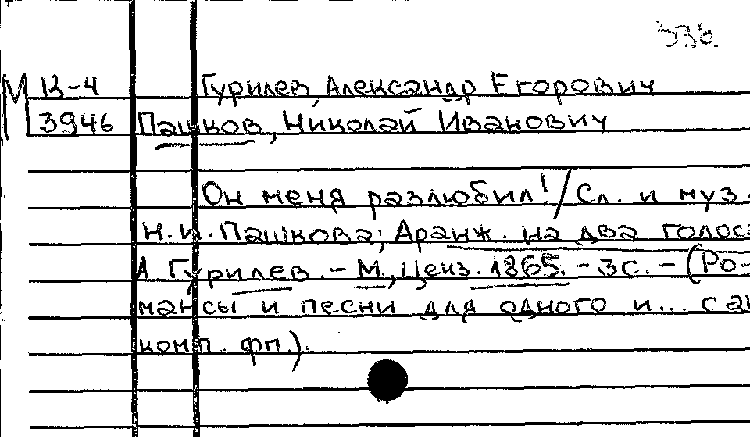 538.
М В-4 Гурилев, Александр Егорович
3946 Пашков, Николай Иванович
Он меня разлюбил! / Сл. и муз.
Н.И. Пашкова; Аранж. на два голоса
А. Гурилев. – М., Ценз. 1865. – 3с. – (Ро-
мансы и песни для одного и...
комп. фп.).